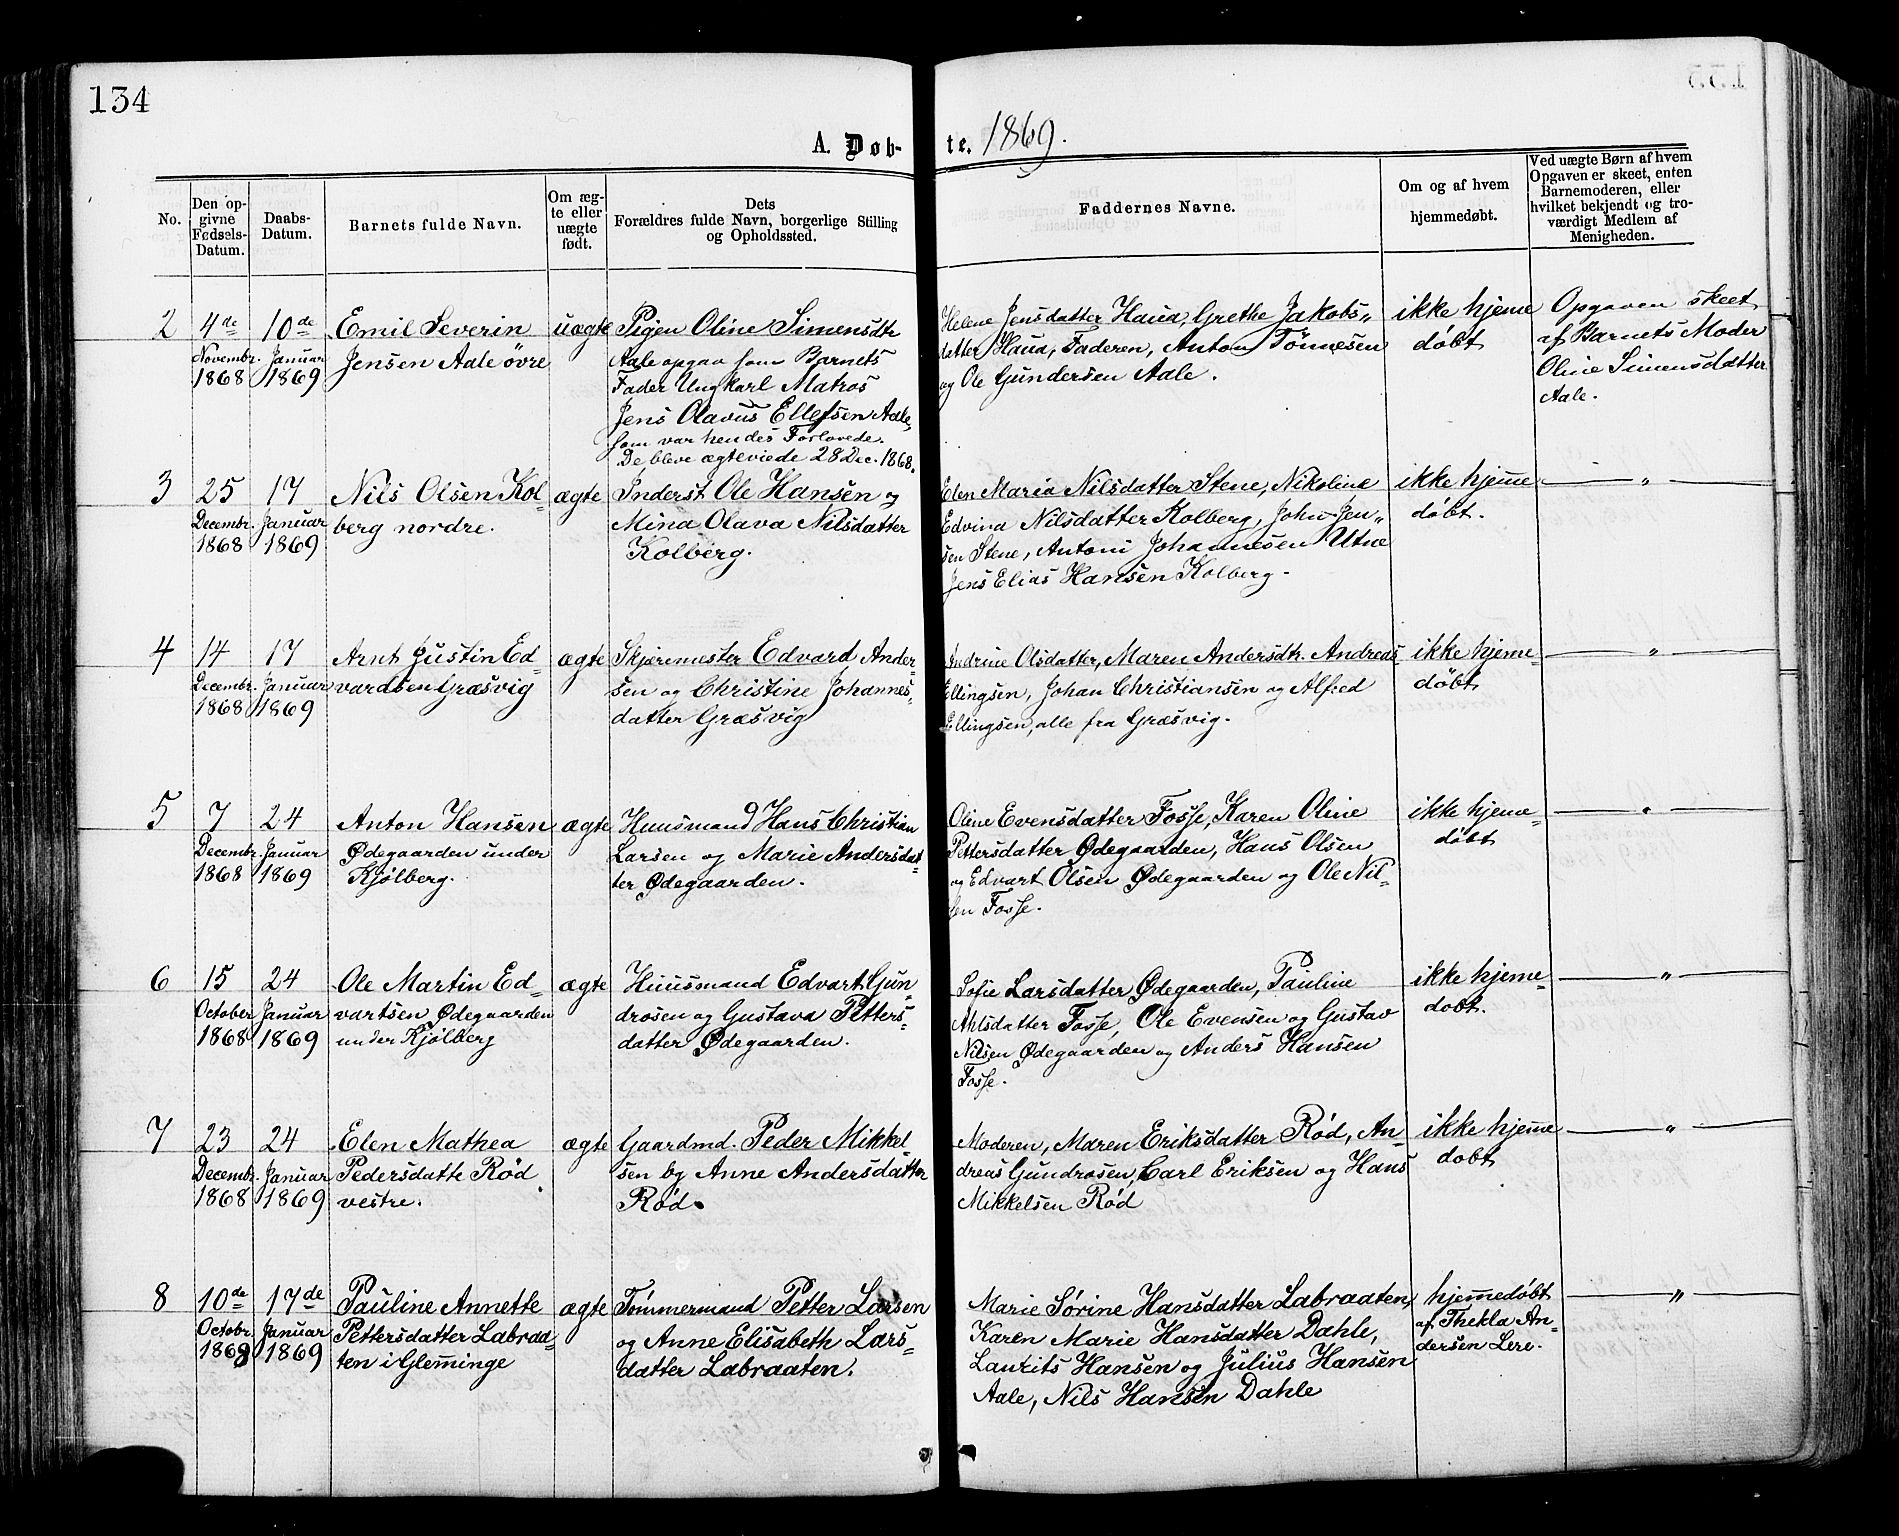 134
A. Døb-
te. 1869.
No.
Den op-
givne
Fødsels-
Datum.
Daabs-
Datum.
Barnets fulde Navn.
Om æg-
te eller
uægte
født.
Dets
Forældres fulde Navn, borgerlige Stilling
og Opholdssted.
Faddernes Navne.
Om og af hvem
hjemmedøbt.
Ved uægte Børn af hvem
Opgaven er skeet, enten
Barnemoderen, eller
hvilket bekjendt og tro-
værdigt Medlem af
Menigheden.
2
4de
Novembr.
1868
10de
Januar
1869
Emil Severin
Jensen Aale övre
uægte
Pigen Oline Simensdtr
Aale opgav som Barnets
Fader Ungkarl Matros
Jens Olavus Ellefsen Aale,
som var hendes Forlovede.
De bleve ægteviede 28 Dec. 1868.
Helene Jensdatter Haua, Grethe Jakobs„
datter Haua, Faderen, Anton Tönnesen
og Ole Gundersen Aale.
ikke hjeme
døbt
Opgaven skeet
af Barnets Moder
Oline Simensdatter
Aale.
3
25
Decembr.
1868
17
Januar
1869
Nils Olsen Kol
berg nordre.
ægte
Inderst Ole Hansen og
Mina Olava Nilsdatter
Kolberg.
Elen Maria Nilsdatter Stene, Nikoline
Edvina Nilsdatter Kolberg, John Jen„
sen Stene, Antoni Johannesen Utne
Jens Elias Hansen Kolberg.
ikke hjeme
døbt.
„
4
14
Decembr.
1868
17
Januar
1869
Arnt Justin Ed-
vardsen Græsvig
ægte
Skjæremester Edvard Ander-
sen og Christine Johannes-
datter Græsvig
Andrine Olsdatter, Maren Andersdtr. Andreas
Ellingsen, Johan Christiansen og Alfred
Ellingsen, alle fra Græsvig.
ikke hjeme-
døbt
„
5
7
Decembr.
1868
24
Januar
1869
Anton Hansen
Ødegaarden under
Kjölberg.
ægte
Huusmand Hans Christian
Larsen og Marie Andersdat
ter Ødegaarden.
Oline Evensdatter Fosse, Karen Oline
Pettersdatter Ødegaarden, Hans Olsen
og Edvart Olsen Ødegaarden og Ole Nil-
sen Fosse.
ikke hjeme-
døbt
„
6
15
October
1868
24
Januar
1869
Ole Martin Ed-
vartsen Ødegaarden
under Kjölberg
ægte
Huusmand Edvart Gun-
drosen og Gustava Petters-
datter Ødegaarden.
Sofie Larsdatter Ødegaarden, Pauline
Ahlsdatter Fosse, Ole Evensen og Gustav
Nilsen Ødegaarden og Anders Hansen
Fosse.
ikke hjeme-
dobt.
„
7
23
Decembr.
1868
24
Januar
1869
Elen Mathea
Pedersdatte Rød
vestre.
ægte
Gaardmd. Peder Mikkel
sen og Anne Andersdatter
Rød.
Moderen, Maren Eriksdatter Rød, An-
dreas Gundrosen, Carl Eriksen og Hans
Mikkelsen Rød
ikke hjeme
dobt
„
8
10de
Octobr.
1868
17de
Januar
1869
Pauline Annette
Pettersdatter Labraa-
ten i Gleminge
ægte
Tömmermand Petter Larsen
og Anne Elisabeth Lars-
datter Labraaten.
Marie Sörine Hansdatter Labraaten,
Karen Marie Hansdatter Dahle,
Laurits Hansen og Julius Hansen
Aale, Nils Hansen Dahle
hjemedöbt
af Thekla An-
dersen Lere.
„